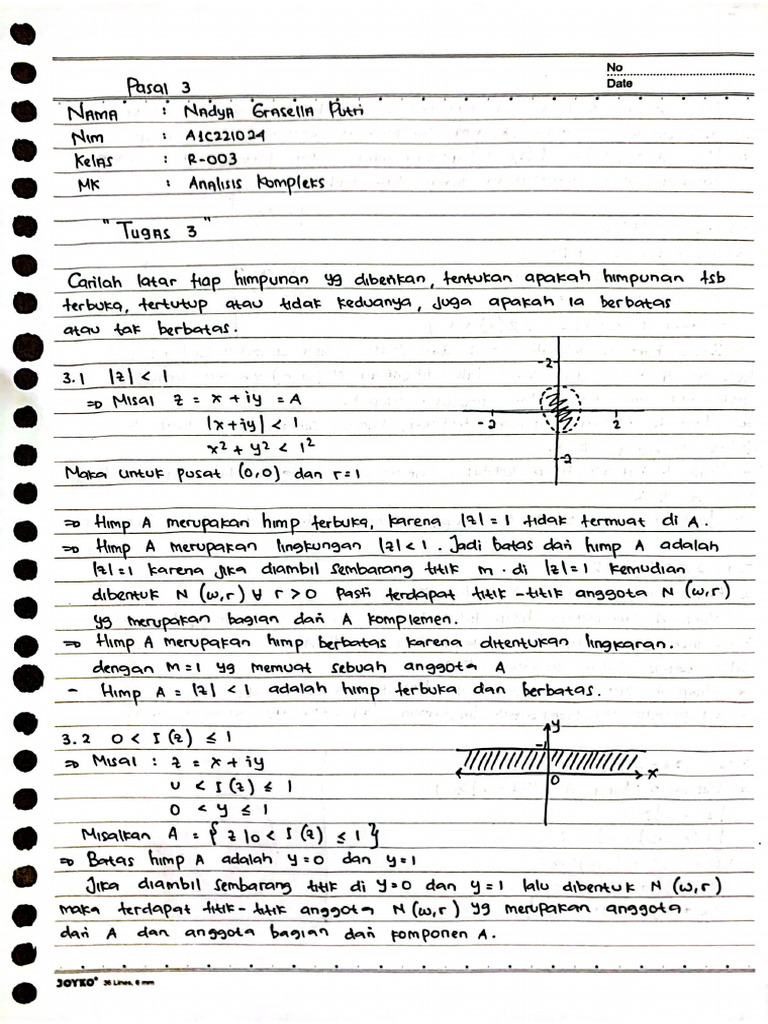 No
Date
Pasal 3
Nama : Nadya Grasella Putri
Nim : A1C221024
Kelas : R-003
MK : Analisis Kompleks
"Tugas 3"
Carilah latar tiap himpunan yg diberikan, tentukan apakah himpunan tsb
terbuka, tertutup atau tidak keduanya, juga apakah ia berbatas
atau tak berbatas.
3.1 |z| < 1
⇒ Misal z = x + iy = A
|x+iy| < 1
x² + y² < 1²
Maka untuk pusat (0,0) dan r=1
-2
-2 2
-2
⇒ Himp A merupakan himp terbuka, karena |z| = 1 tidak termuat di A.
⇒ Himp A merupakan lingkungan |z| < 1. Jadi batas dari himp A adalah
|z| = 1 karena jika diambil sembarang titik m. di |z| = 1 kemudian
dibentuk N (w,r) ∀ r > 0 Pasti terdapat titik-titik anggota N (w,r)
yg merupakan bagian dari A komplemen.
⇒ Himp A merupakan himp berbatas karena ditentukan lingkaran.
dengan M=1 yg memuat sebuah anggota A
- Himp A = |z| < 1 adalah himp terbuka dan berbatas.
3.2 0 < I (z) ≤ 1
⇒ Misal : z = x + iy
0 < I (z) ≤ 1
0 < y ≤ 1
y
-1
0 x
Misalkan A = { z | 0 < I (z) ≤ 1 }
⇒ Batas himp A adalah y=0 dan y=1
Jika diambil sembarang titik di y=0 dan y=1 lalu dibentuk N (w,r)
maka terdapat titik-titik anggota N (w,r) yg merupakan anggota
dari A dan anggota bagian dari komponen A.
JOYKO® 36 Lines, 6 mm